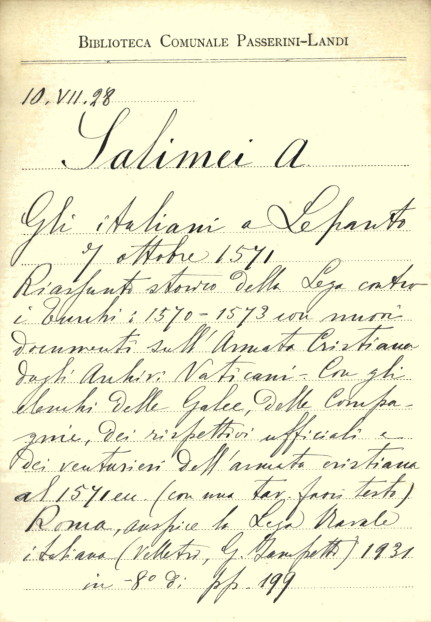 BIBLIOTECA COMUNALE PASSERINI-LANDI
10.VII.28
Salimei A
Gli italiani a Lepanto
7 ottobre 1571
Riassunto storico della Lega contro
i Turchi: 1570-1573 con nuovi
documenti sull'Armata Cristiana
dagli Archivi Vaticani - Con gli
elenchi delle Galee, delle Compa-
gnie, dei rispettivi ufficiali e
dei venturieri dell'armata cristiana
al 1571 (con una tav. fuori testo)
Roma, auspice la Lega Navale
italiana (Velletri, G. Zampetti) 1931
in -8° di pp. 199